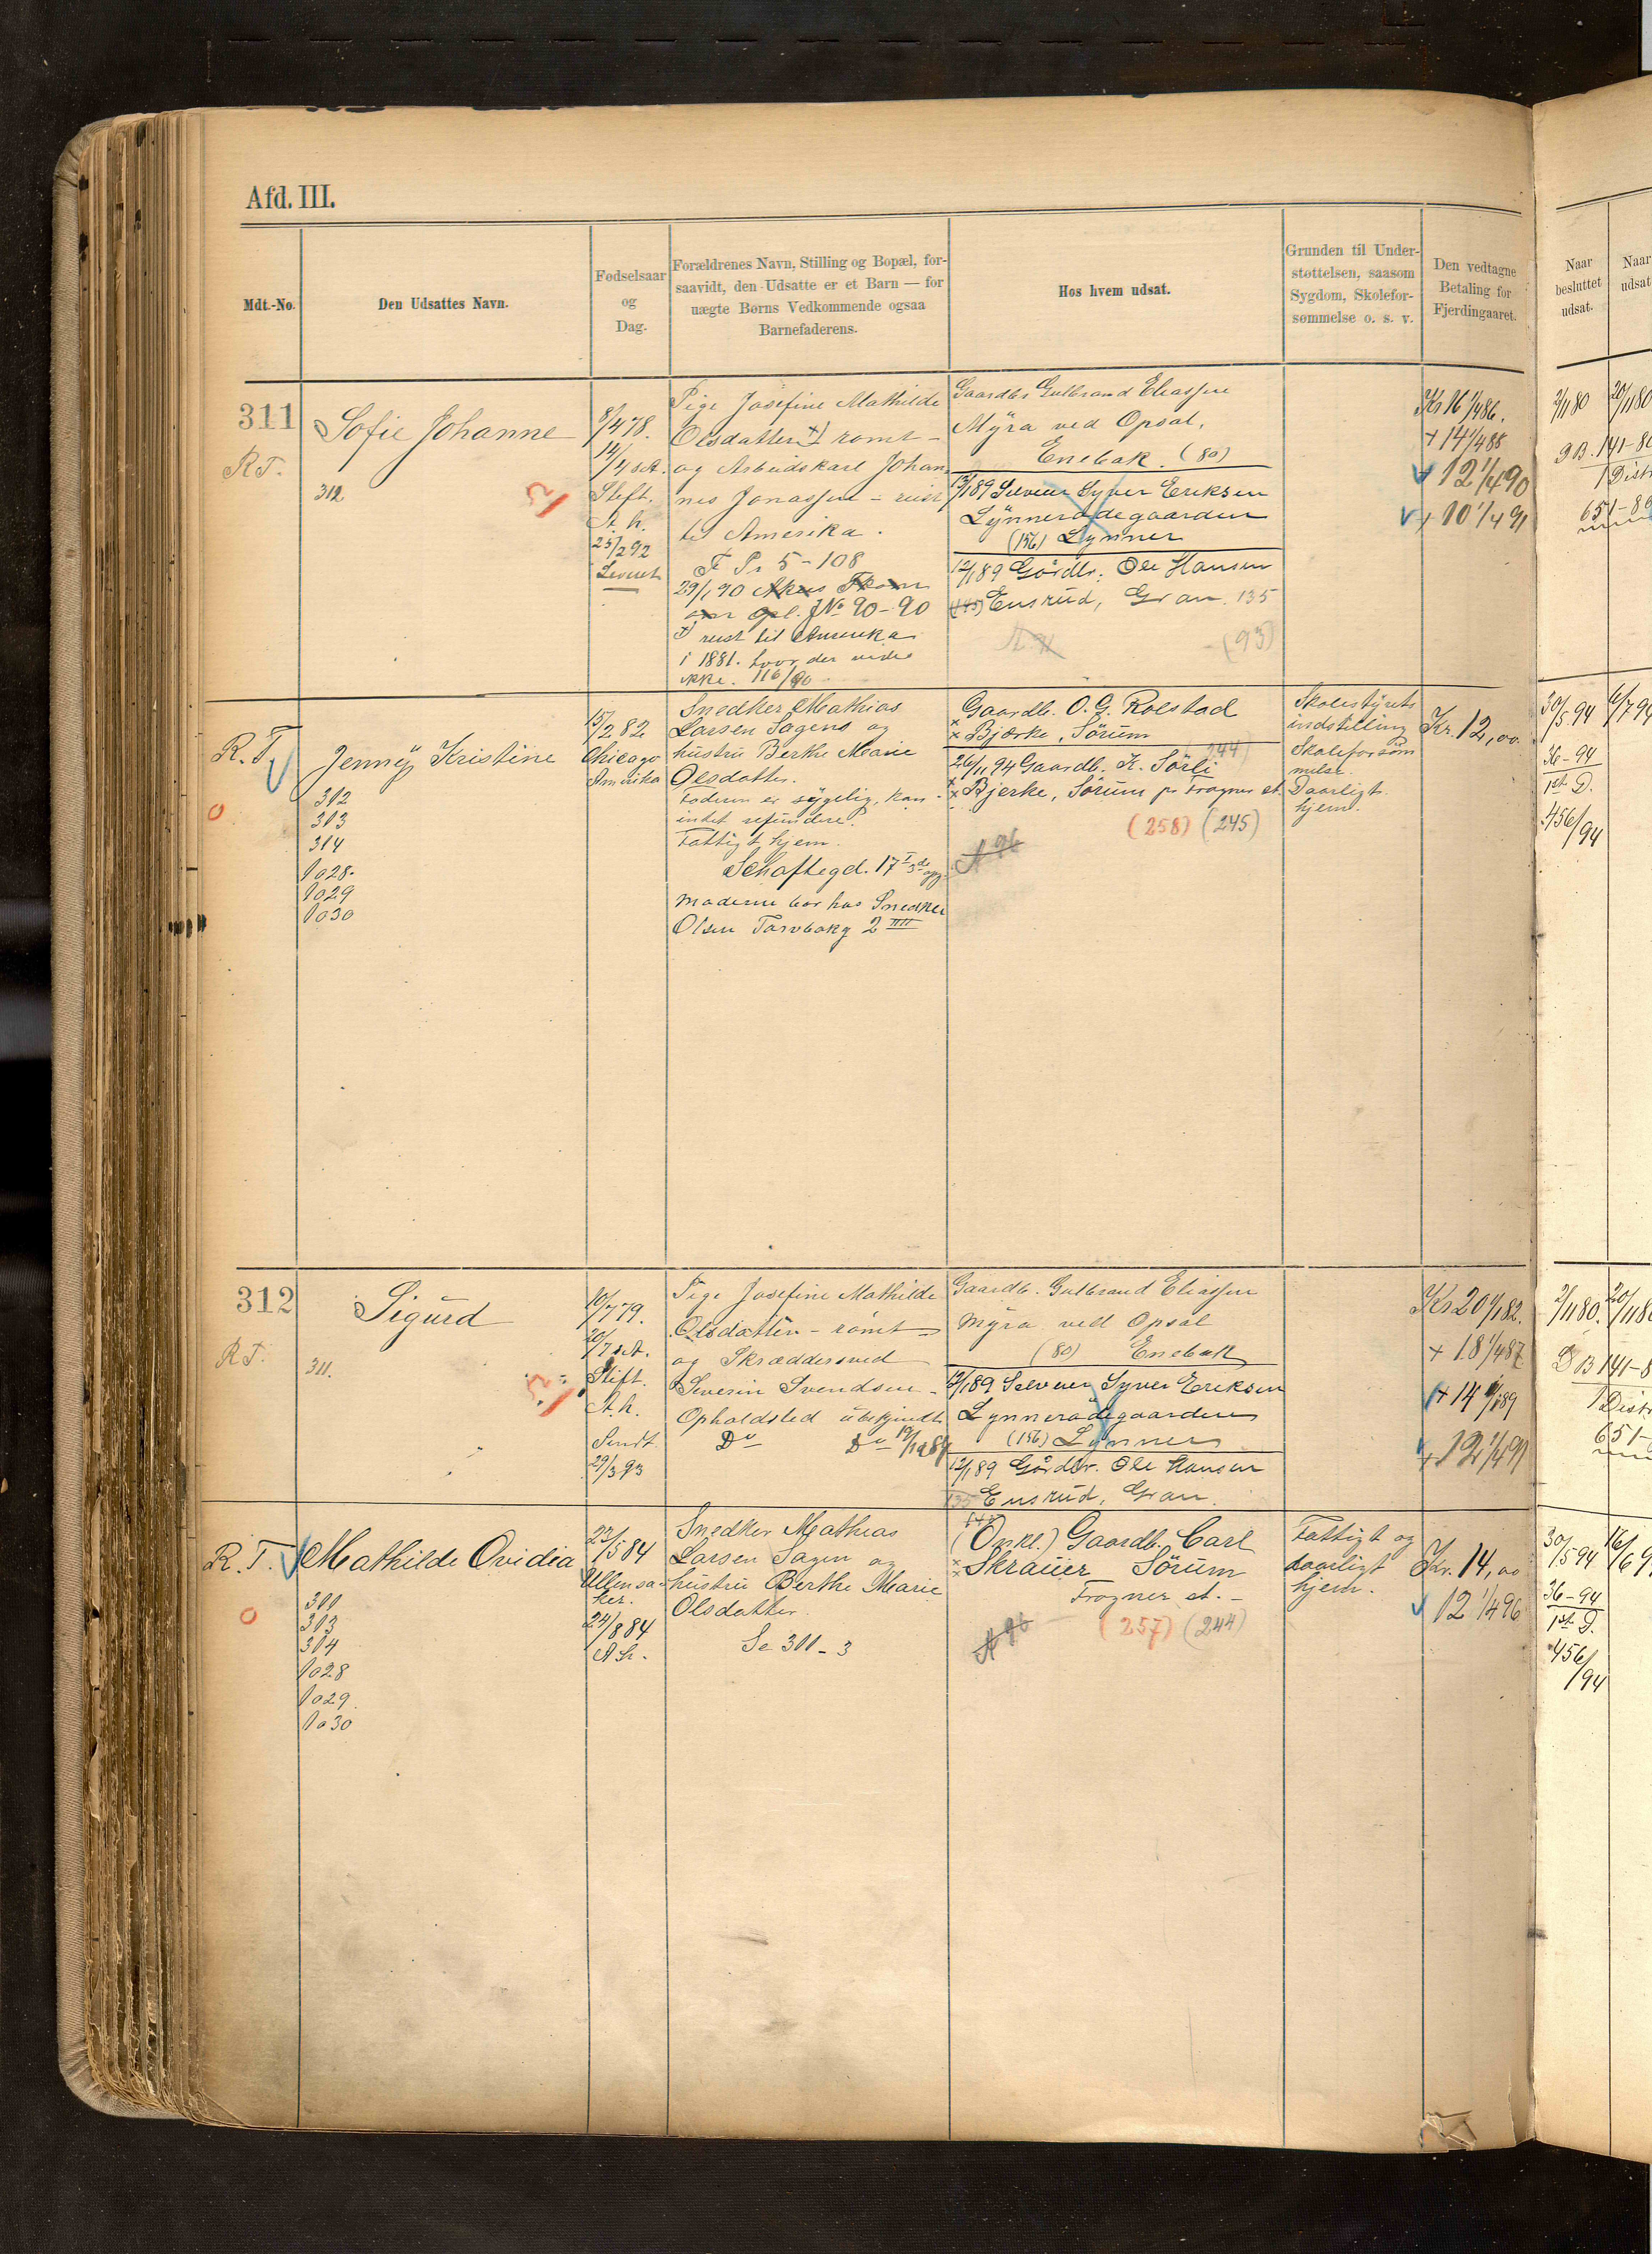 Afd. III.
Mdt.-No.
Den Udsattes Navn.
Fødselsaar
og
Dag.
Forældrenes Navn, Stilling og Bopæl, for-
saavidt, den Udsatte er et Barn — for
uægte Børns Vedkommende ogsaa
Barnefaderens.
Hos hvem udsat.
Grunden til Under-
støttelsen, saasom
Sygdom, Skolefor-
sømmelse o. s. v.
Den vedtagne
Betaling for
Fjerdingaaret.
Naar
besluttet
udsat.
Naar
udsat
311
RT.
Sofie Johanne
312
8/4 78.
14/4 s.A.
Stift.
A. h.
25/2 92
Pige Josefine Mathilde
Olsdatter +) rømt -
og Arbeidskarl Johan-
nes Jonassen - reist
til Amerika.
F Pr 5-108
29/1 90
Opl. JNo 90-90
+) reist til Amerika
i 1881. hvor der vides
ikke. 116/90
Gaardbr Gulbrand Eliassen
Myra ved Opsal,
Enebak. (80)
12/1 89 Selveier Syver Eriksen
Lynnerødegaarden
(156) Lynner
12/1 89 Gårdbr. Ole Hansen
Ensrud, Gran. 135
(93)
Kr 16 1/4 86.
+ 14 1/4 88
+ 12 1/4 90
+ 10 1/4 91
2/11 80
20/11 80
141-80
1 Distr
651-86
R. T.
Jenny Kristine
312
313
314
1028.
1029
1030
15/2 82
Chicago
Amerika
Snedker Mathias
Larsen Sagens og
hustru Berthe Marie
Olsdatter.
Faderen er sygelig, kan
intet refundere.
Fattigt hjem.
Schaftegd. 17 I 3de opg.
Moderen bor hos Snedker
Olsen Torvbakg 2 III
Gaardb. O. G. Rolstad
Bjørke, Sørum
(244)
26/11 94 Gaardb. K. Sørli
Bjerke, Sørum pr Frogner st.
(258) (245)
A 96
Skolestyrets
indstilling
Skoleforsøm
melse.
Daarligt
hjem.
Kr. 12,00.
30/5 94
6/7 94
36-94
1st D.
456/94
312
RT.
Sigurd
311.
10/7 79.
20/7 s.A.
Stift.
A. h.
Sendt
29/3 93
Pige Josefine Mathilde
Olsdatter - rømt -
og Skræddersvend
Severin Svendsen -
Opholdsted ubekjendt
Do Do
Gaardb. Gulbrand Eliassen
Myra ved Opsal
(80) Enebak
12/1 89 Selveier Syver Eriksen
Lynnerødegaarden
(156) Lynner
12/1 89 Gårdbr. Ole Hansen
135 Ensrud, Gran.
Kr 20 1/1 82.
+ 18 1/4 87
+ 14 1/1 89
+ 12 1/4 91
2/11 80.
20/11 80
DB 141-8
1 Distr
651-
R. T.
Mathilde Ovidia
311
313
314
1028
1029.
1030
23/5 84
Ullensa-
ker.
24/8 84
A h.
Snedker Mathias
Larsen Sagen og
hustru Berthe Marie
Olsdatter.
Se 311-3
(Onkl.) Gaardb. Carl
Skrauer Sørum
Frogner st.-
(257) (244)
A 96
Fattigt og
daarligt
hjem.
Kr. 14,00
12 1/4 96
30/5 94
16/6 9
36-94
1st D.
456/94